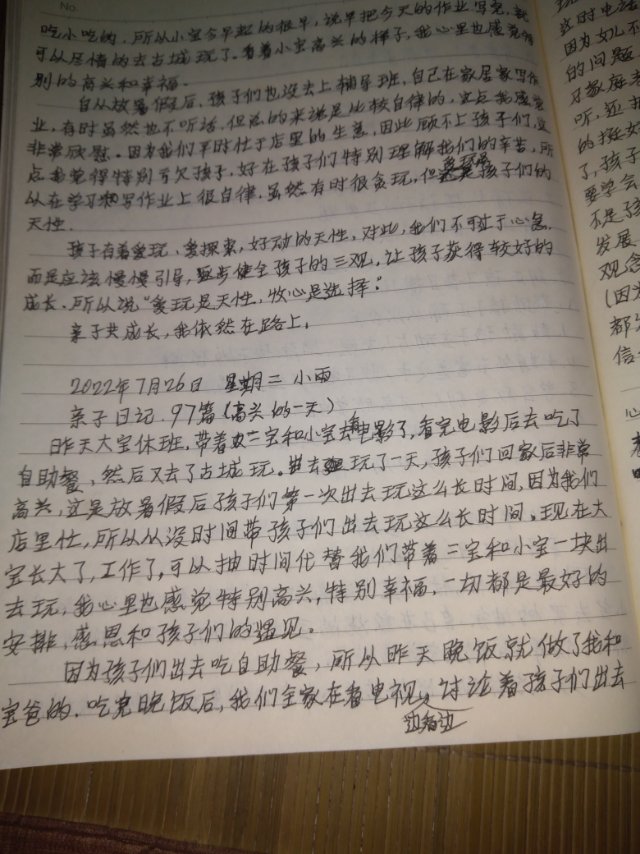 No
吃小吃的，所以小宝今早起的很早，说早把今天的作业写完，就
可以尽情的去古城玩了。看着小宝高兴的样子，我心里也感觉特
别的高兴和幸福。
自从放暑假后，孩子们也没去上辅导班，自己在家居家写作
业，有时虽然也不听话，但总的来说是比较自律的，这点我感觉
非常欣慰。因为我们平时忙于店里的生意，因此顾不上孩子们，这
点我觉得特别亏欠孩子，好在孩子们特别理解我们的辛苦，所
以在学习和写作业上很自律，虽然有时很贪玩，但爱玩是孩子们的
天性。
孩子有着爱玩，爱探索，好动的天性，对此，我们不可过于心急，
而是应该慢慢引导，逐步健全孩子的三观，让孩子获得较好的
成长，所以说"爱玩是天性，收心是选择"。
亲子共成长，我依然在路上。
2022年7月26日 星期二 小雨
亲子日记，97篇（高兴的一天）
昨天大宝休班，带着二宝和小宝去看电影了，看完电影后去吃了
自助餐，然后又去了古城玩。出去玩了一天，孩子们回家后非常
高兴，这是放暑假后孩子们第一次出去玩这么长时间，因为我们
店里忙，所以从没时间带孩子们出去玩这么长时间。现在大
宝长大了，工作了，可以抽时间代替我们带着二宝和小宝一块出
去玩，我心里也感觉特别高兴，特别幸福，一切都是最好的
安排，感恩和孩子们的遇见。
因为孩子们出去吃自助餐，所以昨天晚饭就做了我和
宝爸的，吃完晚饭后，我们全家在看电视，边看边讨论着孩子们出去
这时电话
因为女儿不
的问题
习家庭
听，近
的挺好
了，孩子
要学会
不是孩
发展
观念
（因为
都
信
心